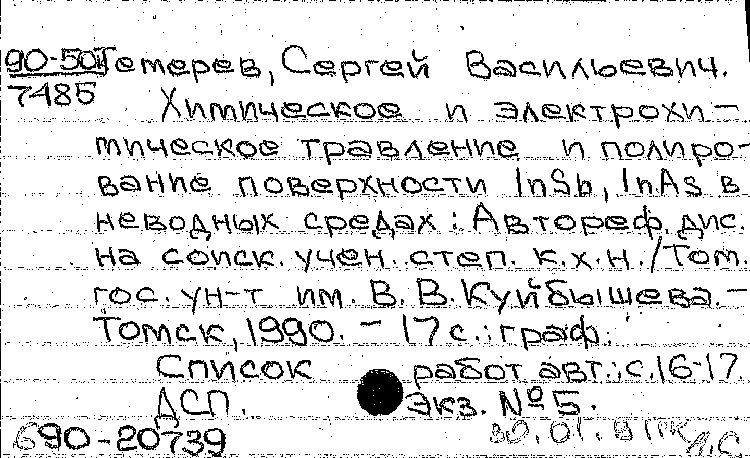 90-50
7485
Тетерев, Сергей Васильевич.
Химическое и электрохи-
мическое травление и полиро-
вание поверхности InSb, InAs в
неводных средах: Автореф. дис.
на соиск. учен. степ. к.х.н./Том.
гос. ун-т им. В. В. Куйбышева. -
Томск, 1990. - 17 с.: граф.
Список работ авт.: с. 16-17.
ДСП. Экз. №5.
690-20739
30.01.91